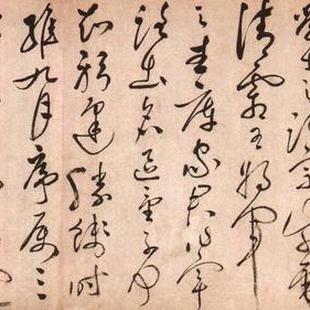 學士之詞宗紫電
清霜王將軍
之武庫家君作宰
路出名區童子何
知躬逢勝餞時
維九月序屬三